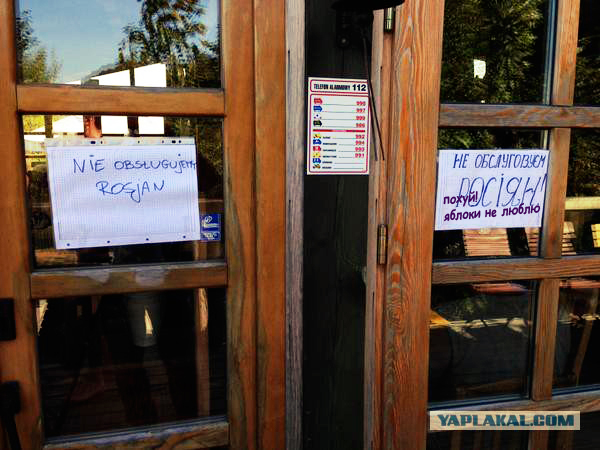 NIE OBSŁUGUJEMY
ROSJAN
TELEFON ALARMOWY 112
998
997
999
986
992
994
993
991
НЕ ОБСЛУГОВУЄМ
РОСІЯН!
похуй!
яблоки не люблю
YAPLAKAL.COM